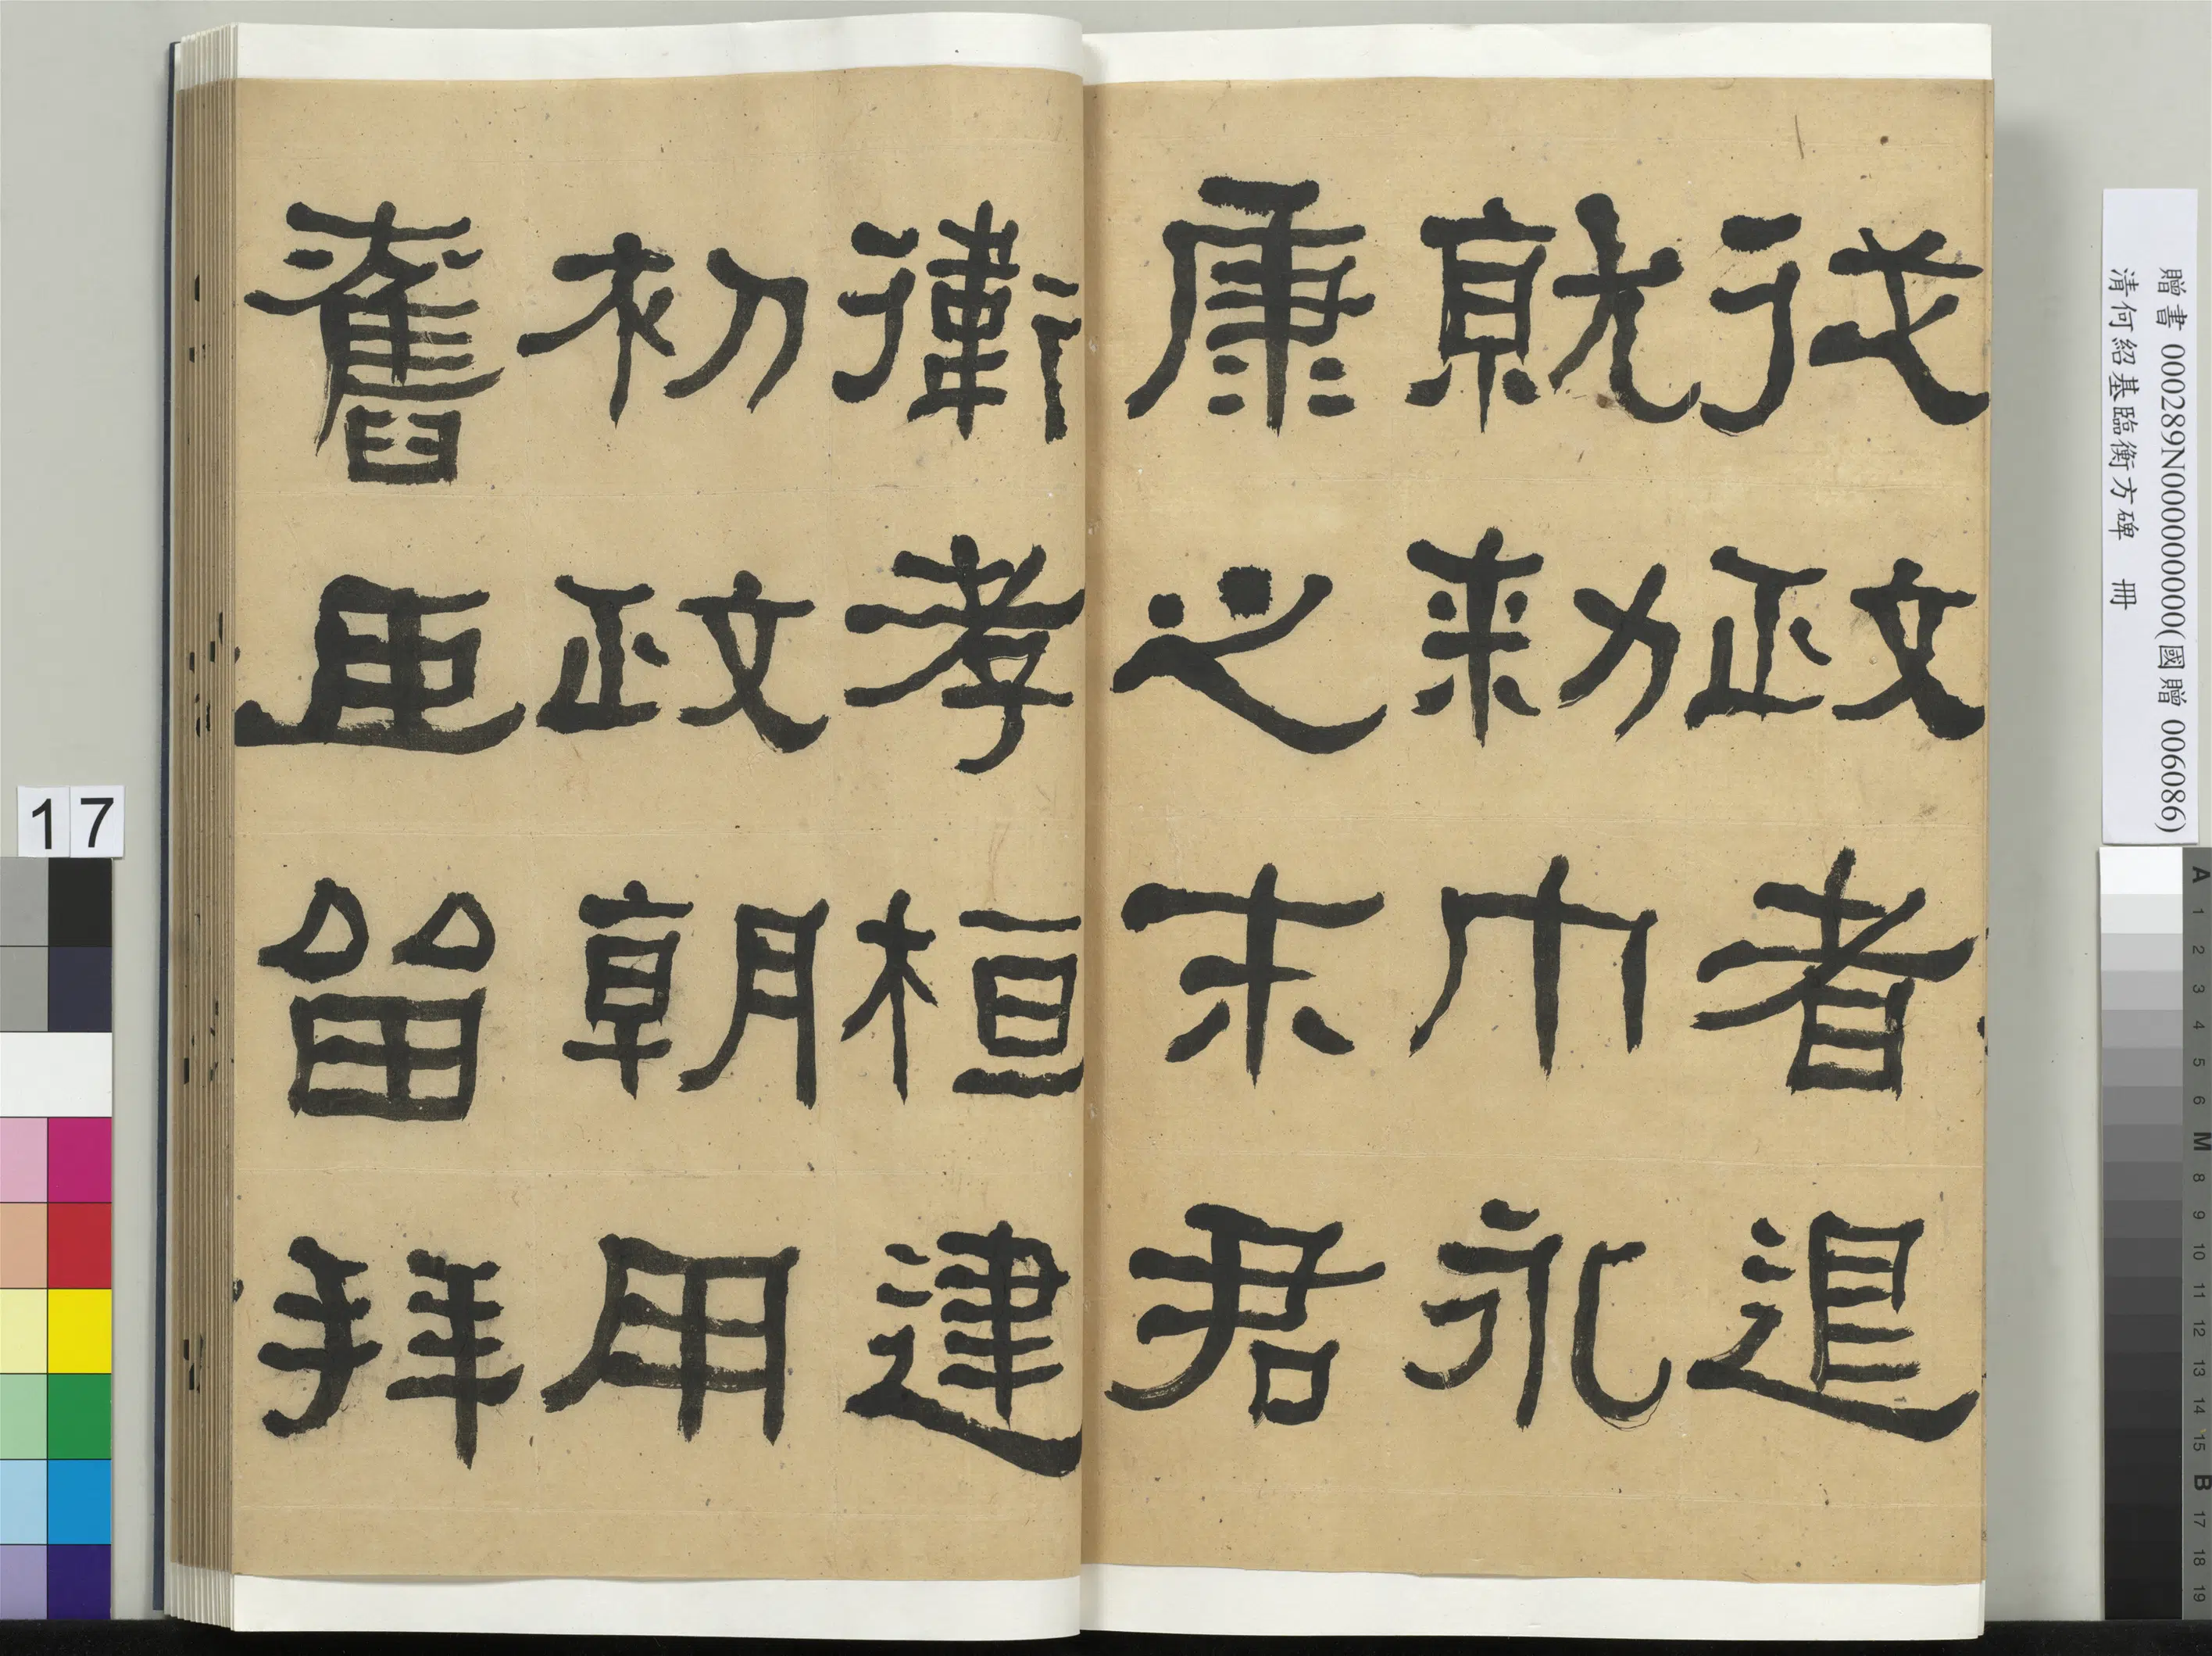 從政者退
就勑巾永
康之末君
衛孝桓建
初政朝用
舊臣留拜
贈書 000289N000000000(國贈 006086)
清何紹基臨衡方碑 冊
17
A 1 2 3 4 5 6 M 8 9 10 11 12 13 14 15 B 17 18 19